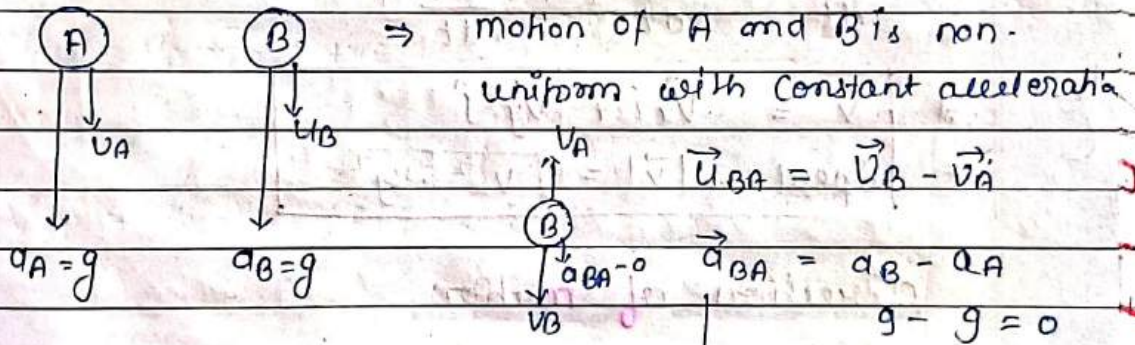 A B ⇒ motion of A and B is non-
uniform with Constant acceleratia
vA uB
vA
u⃗BA = v⃗B - v⃗A
B
aA = g aB = g aBA = 0 a⃗BA = aB - aA
vB g - g = 0